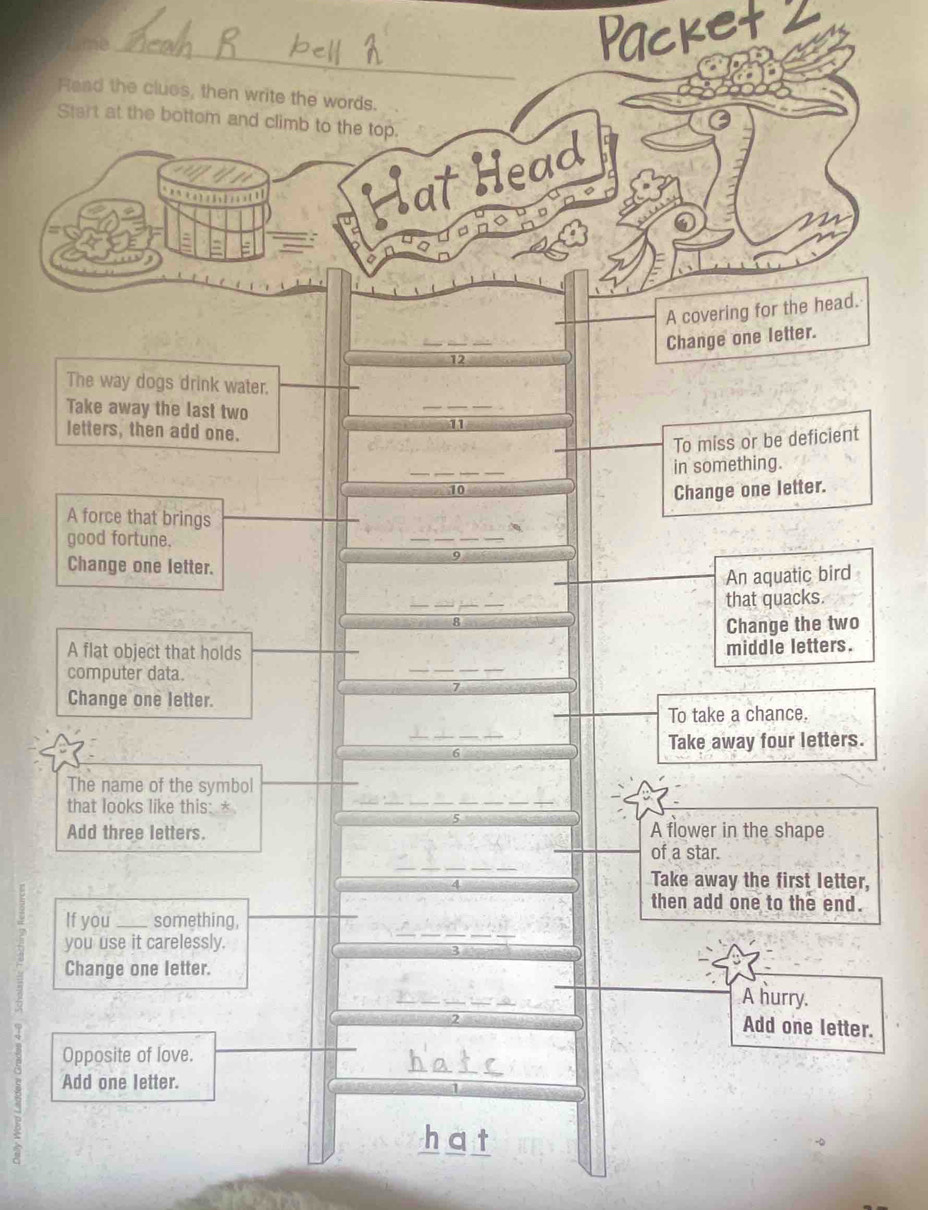 R bell
Packet 2
Read the clues, then write the words.
Start at the bottom and climb to the top.
Hat Head
A covering for the head.
Change one letter.
12
The way dogs drink water.
Take away the last two
letters, then add one.
11
To miss or be deficient
in something.
Change one letter.
10
A force that brings
good fortune.
Change one letter.
9
An aquatic bird
that quacks.
Change the two
middle letters.
8
A flat object that holds
computer data.
Change one letter.
7
To take a chance.
Take away four letters.
6
The name of the symbol
that looks like this: *
Add three letters.
5
A flower in the shape
of a star.
Take away the first letter,
then add one to the end.
4
If you ____ something,
you use it carelessly.
Change one letter.
3
A hurry.
Add one letter.
2
Opposite of love.
Add one letter.
hate
1
hat
Daily Word Ladders: Grades 4–6 Scholastic Teaching Resources